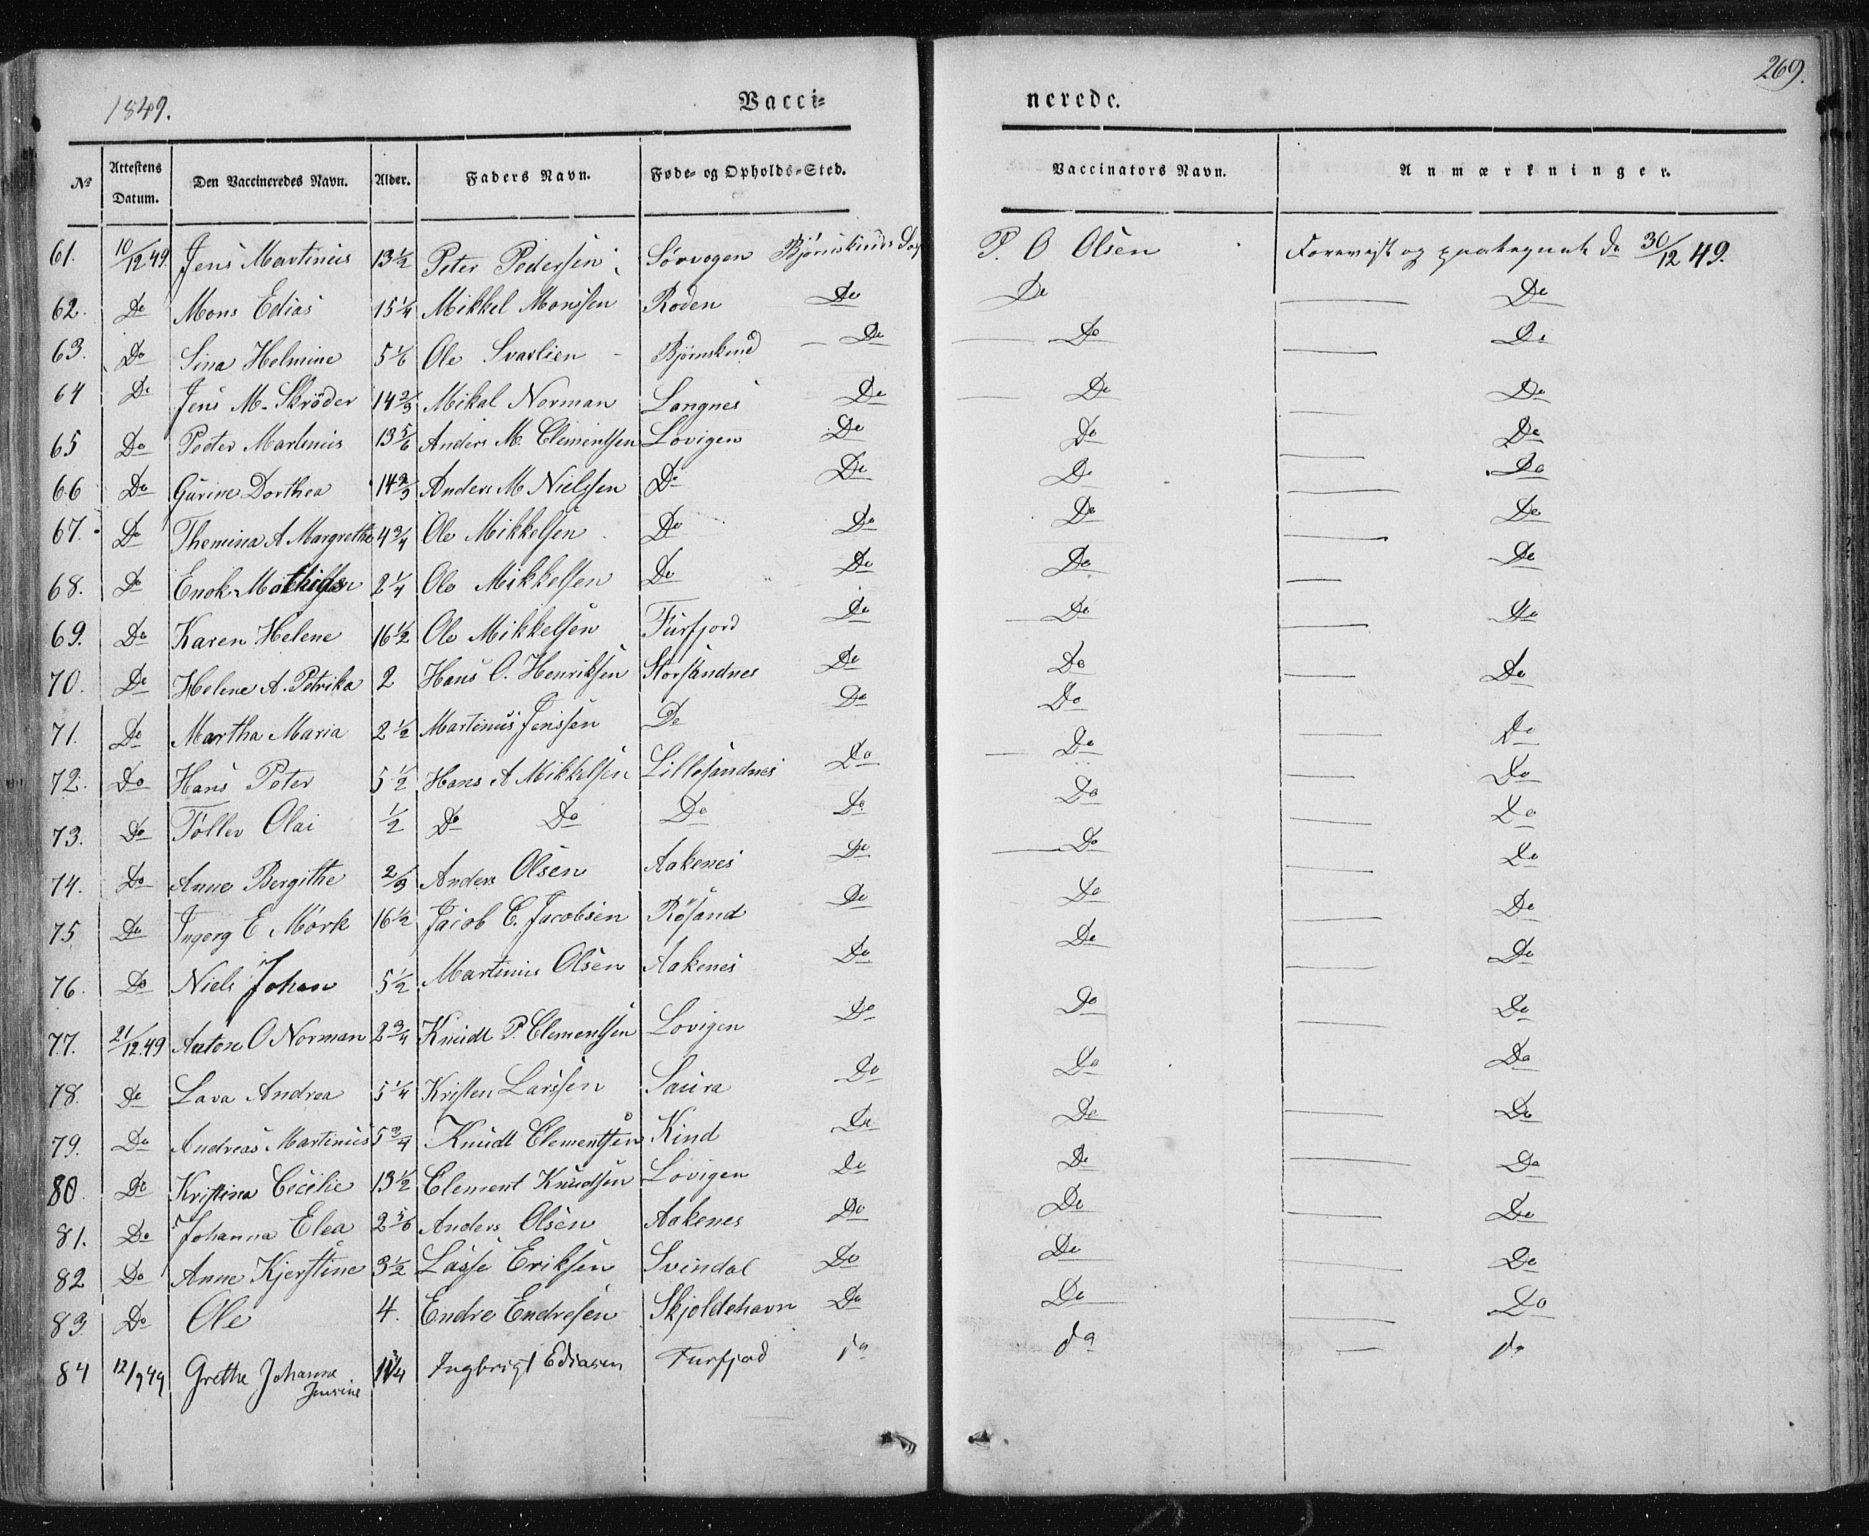 269.
1849. Vacci= nerede.
No Attestens Datum. Den Vaccineredes Navn. Alder. Faders Navn. Føde- og Opholds-Sted. Vaccinators Navn. Anmærkninger.
61. 10/12 49. Jens Martinus 13 1/2 Peter Pedersen Sørvogen P. O Olsen Foreviist og paategnet d 30/12 49.
62. Do Mons Edias 15 1/4 Mikkel Monssen Roden Do Do Do
63. Do Sina Helmine 5 1/6 Ole Svarlien Bjørnskind Do Do Do
64 Do Jens M. Skrøder 14 2/3 Mikal Norman Langnes Do Do Do
65 Do Peder Martinus 13 5/6 Anders M. Clementsen Lovigen Do Do Do
66 Do Gurine Dorthea 14 2/3 Anders M Nielssen Do Do Do Do
67. Do Themina A Margrethe 4 3/4 Ole Mikkelsen Do Do Do Do
68. Do Enok 2 1/4 Ole Mikkelsen Do Do Do Do
69. Do Karen Helene 16 1/2 Ole Mikkelsen Furfjord Do Do Do
70. Do Helene A. Petrika 2 Hans C. Henriksen Storsandnes Do Do Do
71. Do Martha Maria 2 1/2 Martinus Jenssen Do Do Do Do
72. Do Hans Peter 5 1/2 Hans A Mikkelsen Lillesandnes Do Do Do
73. Do Tøller Olai 1/2 Do Do Do Do Do Do
74. Do Anne Bergithe 2/3 Anders Olsen Aakenes Do Do Do
75 Do Ingerg E Mørk 16 1/2 Jacob C. Jacobsen Røsand Do Do Do
76. Do Niels Johan 5 1/2 Martinus Olsen Aakenes Do Do Do
77. 21/12 49 Anton O Norman 2 3/4 Knudt P. Clementsen Lovigen Do Do Do
78. Do Lava Andrea 5 1/4 Kristen Larssen Saura Do Do Do
79. Do Andreas Martinus 5 3/4 Knudt Clementsen Kind Do Do Do
80 Do Kristina Cecilie 13 1/2 Clement Knudsen Lovigen Do Do Do
81. Do Johanna Elea 2 5/6 Anders Olsen Aakenes Do Do Do
82 Do Anne Kjerstine 3 1/2 Lasse Eriksen Svindal Do Do Do
83. Do Ole 4. Endre Endresen Skjoldehavn Do Do Do
84 12/9 49 Grethe Johanne Jensine 1/4 Ingbrigt Ediasen Furfjod do do do